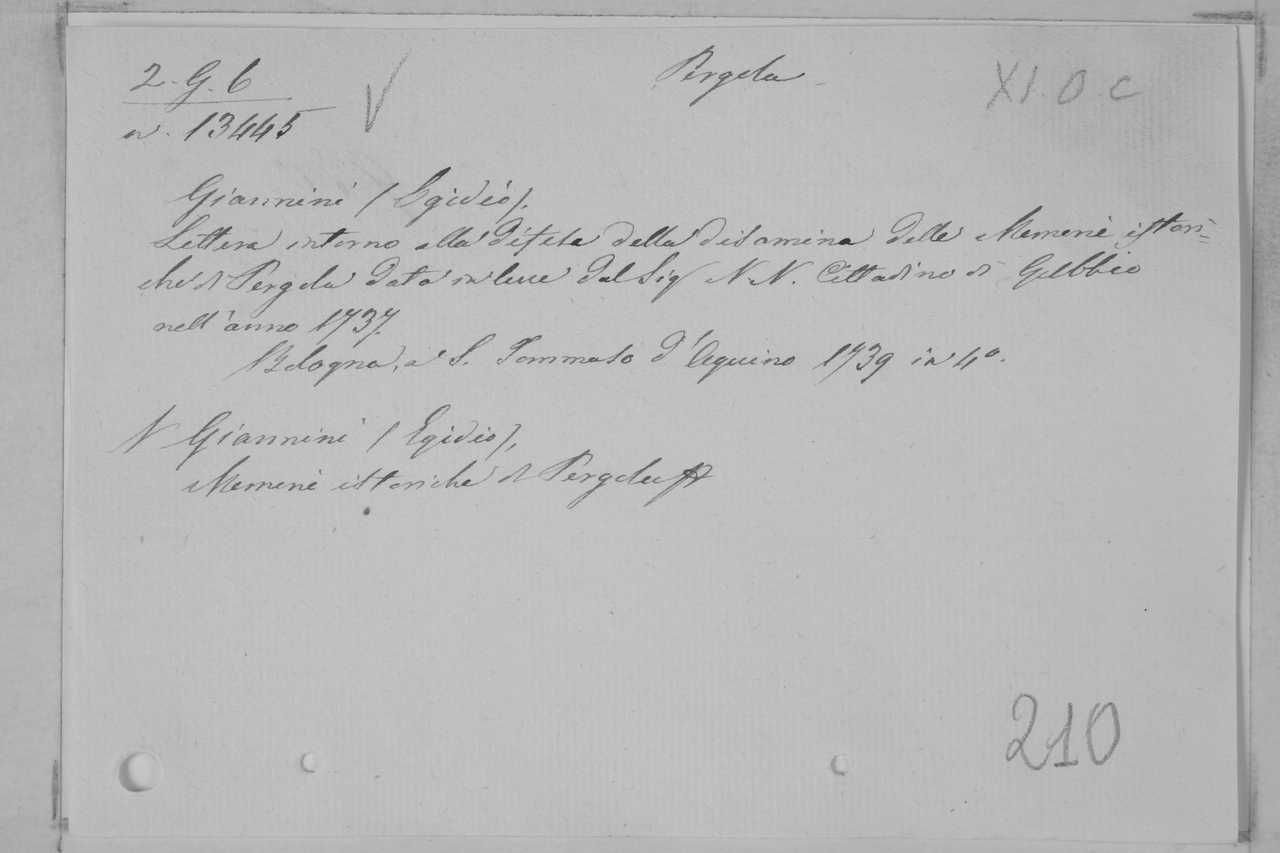 2. G. 6
Pergola
XI. O. C
n. 13445
Giannini (Egidio).
Lettera intorno alla difesa della disamina delle Memorie istori=
che di Pergola data in luce dal Sig N. N. Cittadino di Gubbio
nell'anno 1737.
Bologna, a S. Tommaso d'Aquino 1739 in 4º.
V Giannini (Egidio),
Memorie istoriche di Pergola
210